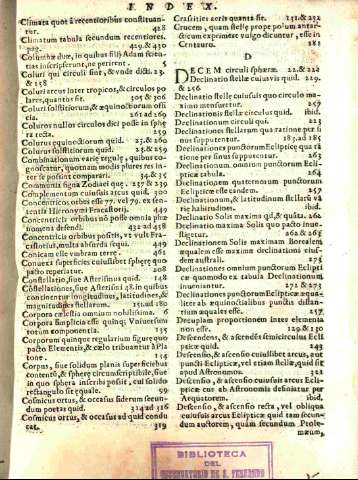 INDEX.
Climata quot à recentioribus constituantur. 428
Climatum tabula secundum recentiores. pag. 429.& 430
Columnæ duæ, in quibus filij Adam scientias inscripserunt, ne perirent. 5
Coluri qui circuli sint, & vnde dicti. 23. & 258
Coluri arcus inter tropicos, & circulos polares, quantus sit. 305 & 306
Coluri solstitiorum, & æquinoctiorum officia. 261 ad 269
Coluros nullos circulos dici posse in sphæra recta. 259
Colurus æquinoctiorum quid. 25.& 260
Colurus solstitiorum quid. 25.& 259
Combinationum variæ regulæ, quibus cognoscatur, quotnam modis plures res inter se possint comparari. 34.& 35
Communia signa Zodiaci quæ. 237 & 239
Complementum cuiusuis arcus quid. 300
Concentricos orbes esse 77. vel 79. ex sententia Hieronymi Fracastorij. 449
Concentricis orbibus nō posse omnia phænomena defendi. 432 ad 438
Concentricis orbibus positis, vt vult Fracastorius, multa absurda sequi. 449
Conicam esse vmbram terræ. 461
Conuexa superficies cuiuslibet sphæræ quo pacto reperiatur. 208
Constellatio, siue Asterismus quid. 148
Constellationes, siue Asterismi 48. in quibus continentur longitudines, latitudines, & magnitudines stellarum. 151.ad 180
Corpora cœlestia omnium nobilissima. 6
Corpora simplicia esse quinque Vniuersum totum componentia. 135
Corporum quinque regularium figuræ quo pacto Elementis, & cælo tribuantur à Platone. 134
Corpus, siue solidum planis superficiebus contentū, & sphæræ circumscriptibile, siue in quo sphæra inscribi possit, cui solido rectangulo sit equale. 99
Cosmicus ortus, & occasus siderum secundum poetas quid. 314 ad 316
Cosmicus ortus, & occasus ad quid conducat. 319
Crassities aeris quanta sit. 131.& 232
Crucem, quam stellæ prope polum antarcticum exprimere vulgo dicuntur, esse in Centauro. 181
D
DECEM circuli sphæræ. 22.& 226
Declinatio stellæ cuiusuis quid. 229. & 256
Declinatio stellæ cuiusuis quo circulo maximo mensuretur. 257
Declinationis stellæ circulus quid. ibid.
Declinationum circuli qui. 223
Declinationes stellarum qua ratione per sinus supputentur. 183.ad 185
Declinationes punctorum Eclipticæ qua ratione per sinus supputentur. 263
Declinationum omnium punctorum Eclipticæ tabula. 264
Declinationem quaternorum punctorum Eclipticæ esse eandem. 257
Declinationum, & latitudinum stellarū variæ habitudines. ibid.
Declinatio Solis maxima qd, & quāta. 262
Declinatio maxima Solis quo pacto inuestigetur. 262.& 265
Declinationem Solis maximam Borealem æqualem esse maximæ declinationi eiusdem australi. 275
Declinationes omnium punctorum Eclipticæ quomodo ex tabula Declinationum inueniantur. 272 & 273
Declinationes punctorum Eclipticæ æqualiter ab æquinoctialibus punctis distantium æquales esse. 257
Decuplam proportionem inter elementa non esse. 129.& 130
Descendens, & ascendens semicirculus Eclipticæ quid. 249
Descensio, & ascensio cuiuslibet arcus, aut puncti Eclipticæ, vel etiam stellæ, quid sit apud Astronomos. 322
Descensio, & ascensio cuiusuis arcus Eclipticæ cur ab Astronomis definiatur per Aequatorem. ibid.
Descensio, & ascensio recta, vel obliqua cuiusuis arcus Eclipticæ quid tam secundum auctorem, quam secundum Ptolemæum,
BIBLIOTECA
DEL
OBSERVATORIO DE S. FERNANDO